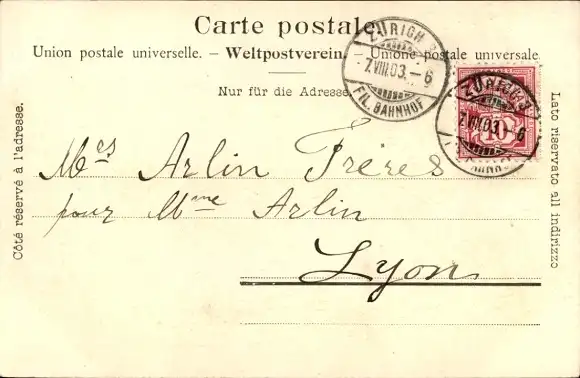 Carte postale.
Union postale universelle. – Weltpostverein. – Unione postale universale
Nur für die Adresse.
ZÜRICH
7.VIII.03.–6
FIL. BAHNHOF
ZÜRICH
7.VIII.03.–6
10
Côté réservé à l'adresse.
Mrs Arlin Frères
pour Mme Arlin
Lyon
Lato riservato all indirizzo